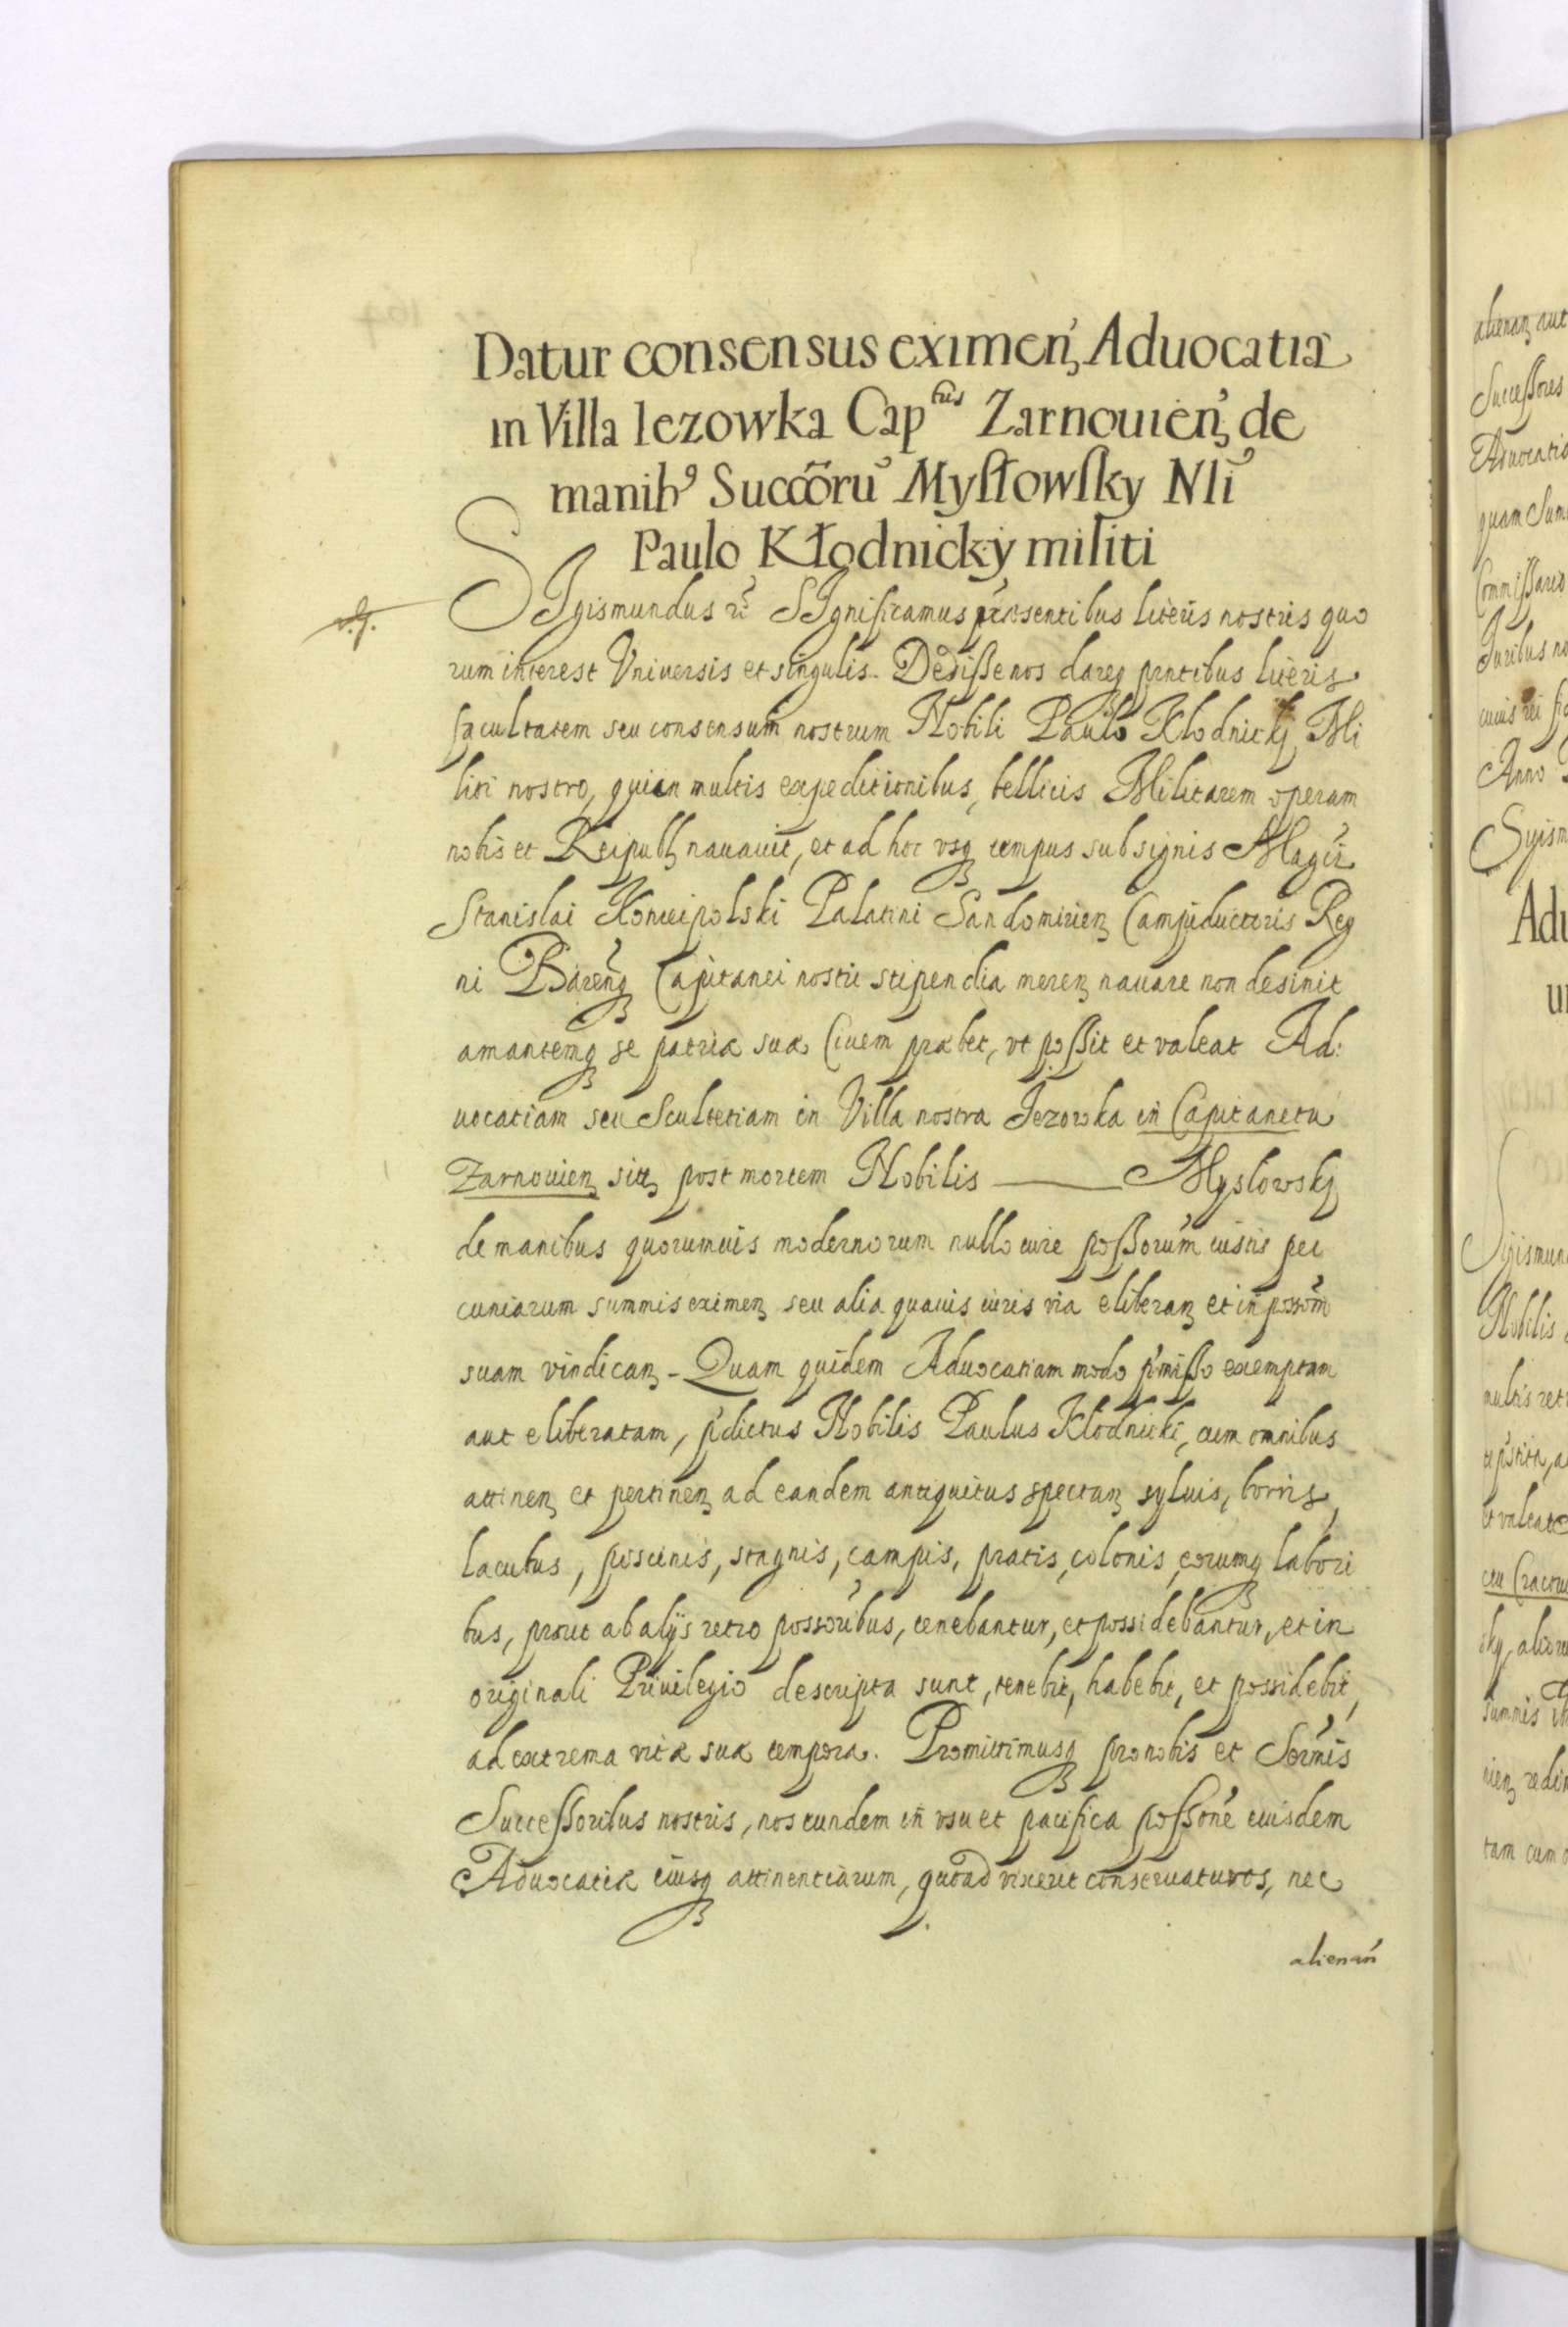 Datur consensus eximen̄ Aduocatiæ
in Villa Iezowka Cap^tus Zarnouien̄ de
manib9 Succōru Mysłowsky Nli
Paulo Kłodnicky militi
SIgismundus &c SIgnificamus præsentibus literis nostris quo
rum interest Vniuersis et singulis. Dedisse nos dareq pntibus literis
facultatem seu consensum nostrum Nobili Paulo Klodnickj Mi
liti nostro, qui in multis expeditionibus, bellicis Militarem operam
nobis et Reipubl nauauit, et ad hoc vsq tempus sub signis Magci
Stanislai Koniecpolski Palatini Sandomirien Campiductoris Reg
ni Barenq Capitanei nostri stipendia meren nauare non desinit
amantemq se patriæ suæ Ciuem præbet, vt possit et valeat Ad:
uocatiam seu Scultetiam in Villa nostra Jezowka in Capitanetu
Zarnouien sitt post mortem Nobilis ——— Myslowskj
de manibus quorumuis modernorum nullo iure possorum iustis pec
cuniarum summis eximen seu alia quauis iuris via eliberan et in possom
suam vindican - Quam quidem Aduocatiam modo pmisso exemptam
aut eliberatam, pdictus Nobilis Paulus Klodnicki, cum omnibus
attinen et pertinen ad eandem antiquitus spectan syluis, borris,
lacubus, piscinis, stagnis, campis, pratis, colonis, eorumq labori
bus, prout ab alijs retro possoribus, tenebantur, et possidebantur, et in
originali Priuilegio descripta sunt, tenebit, habebit, et possidebit,
ad extrema vitæ suæ tempora. Promittimusq pro nobis et Sermis
Successoribus nostris, nos eundem in vsu et pacifica possone eiusdem
Aduocatiæ eiusq attinentiarum, quoad vixerit conseruaturos, nec
alienan
alienan aut
Successores
Aduocatia
quam Sum
Commissario
Juribus no
cuius rei fi
Anno
Sigism
Adu
Sigismun
Nobilis
multis ret
et valeat
tam cum o